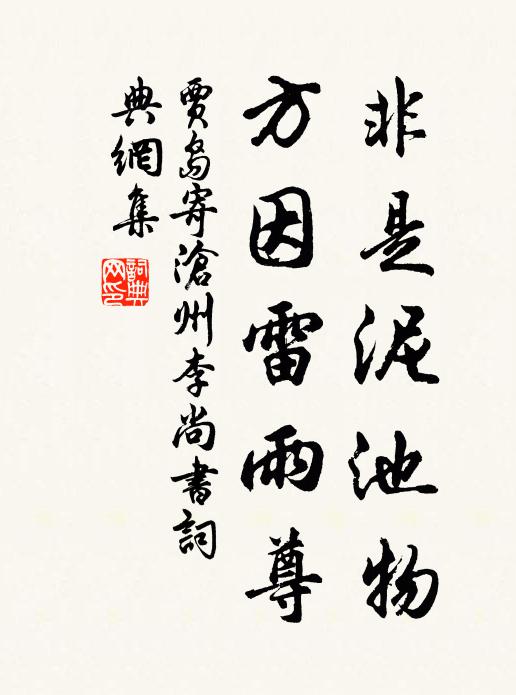 非是泥池物
方因雷雨尊
賈島寄滄州李尚書詞
典網集
詞典
网印